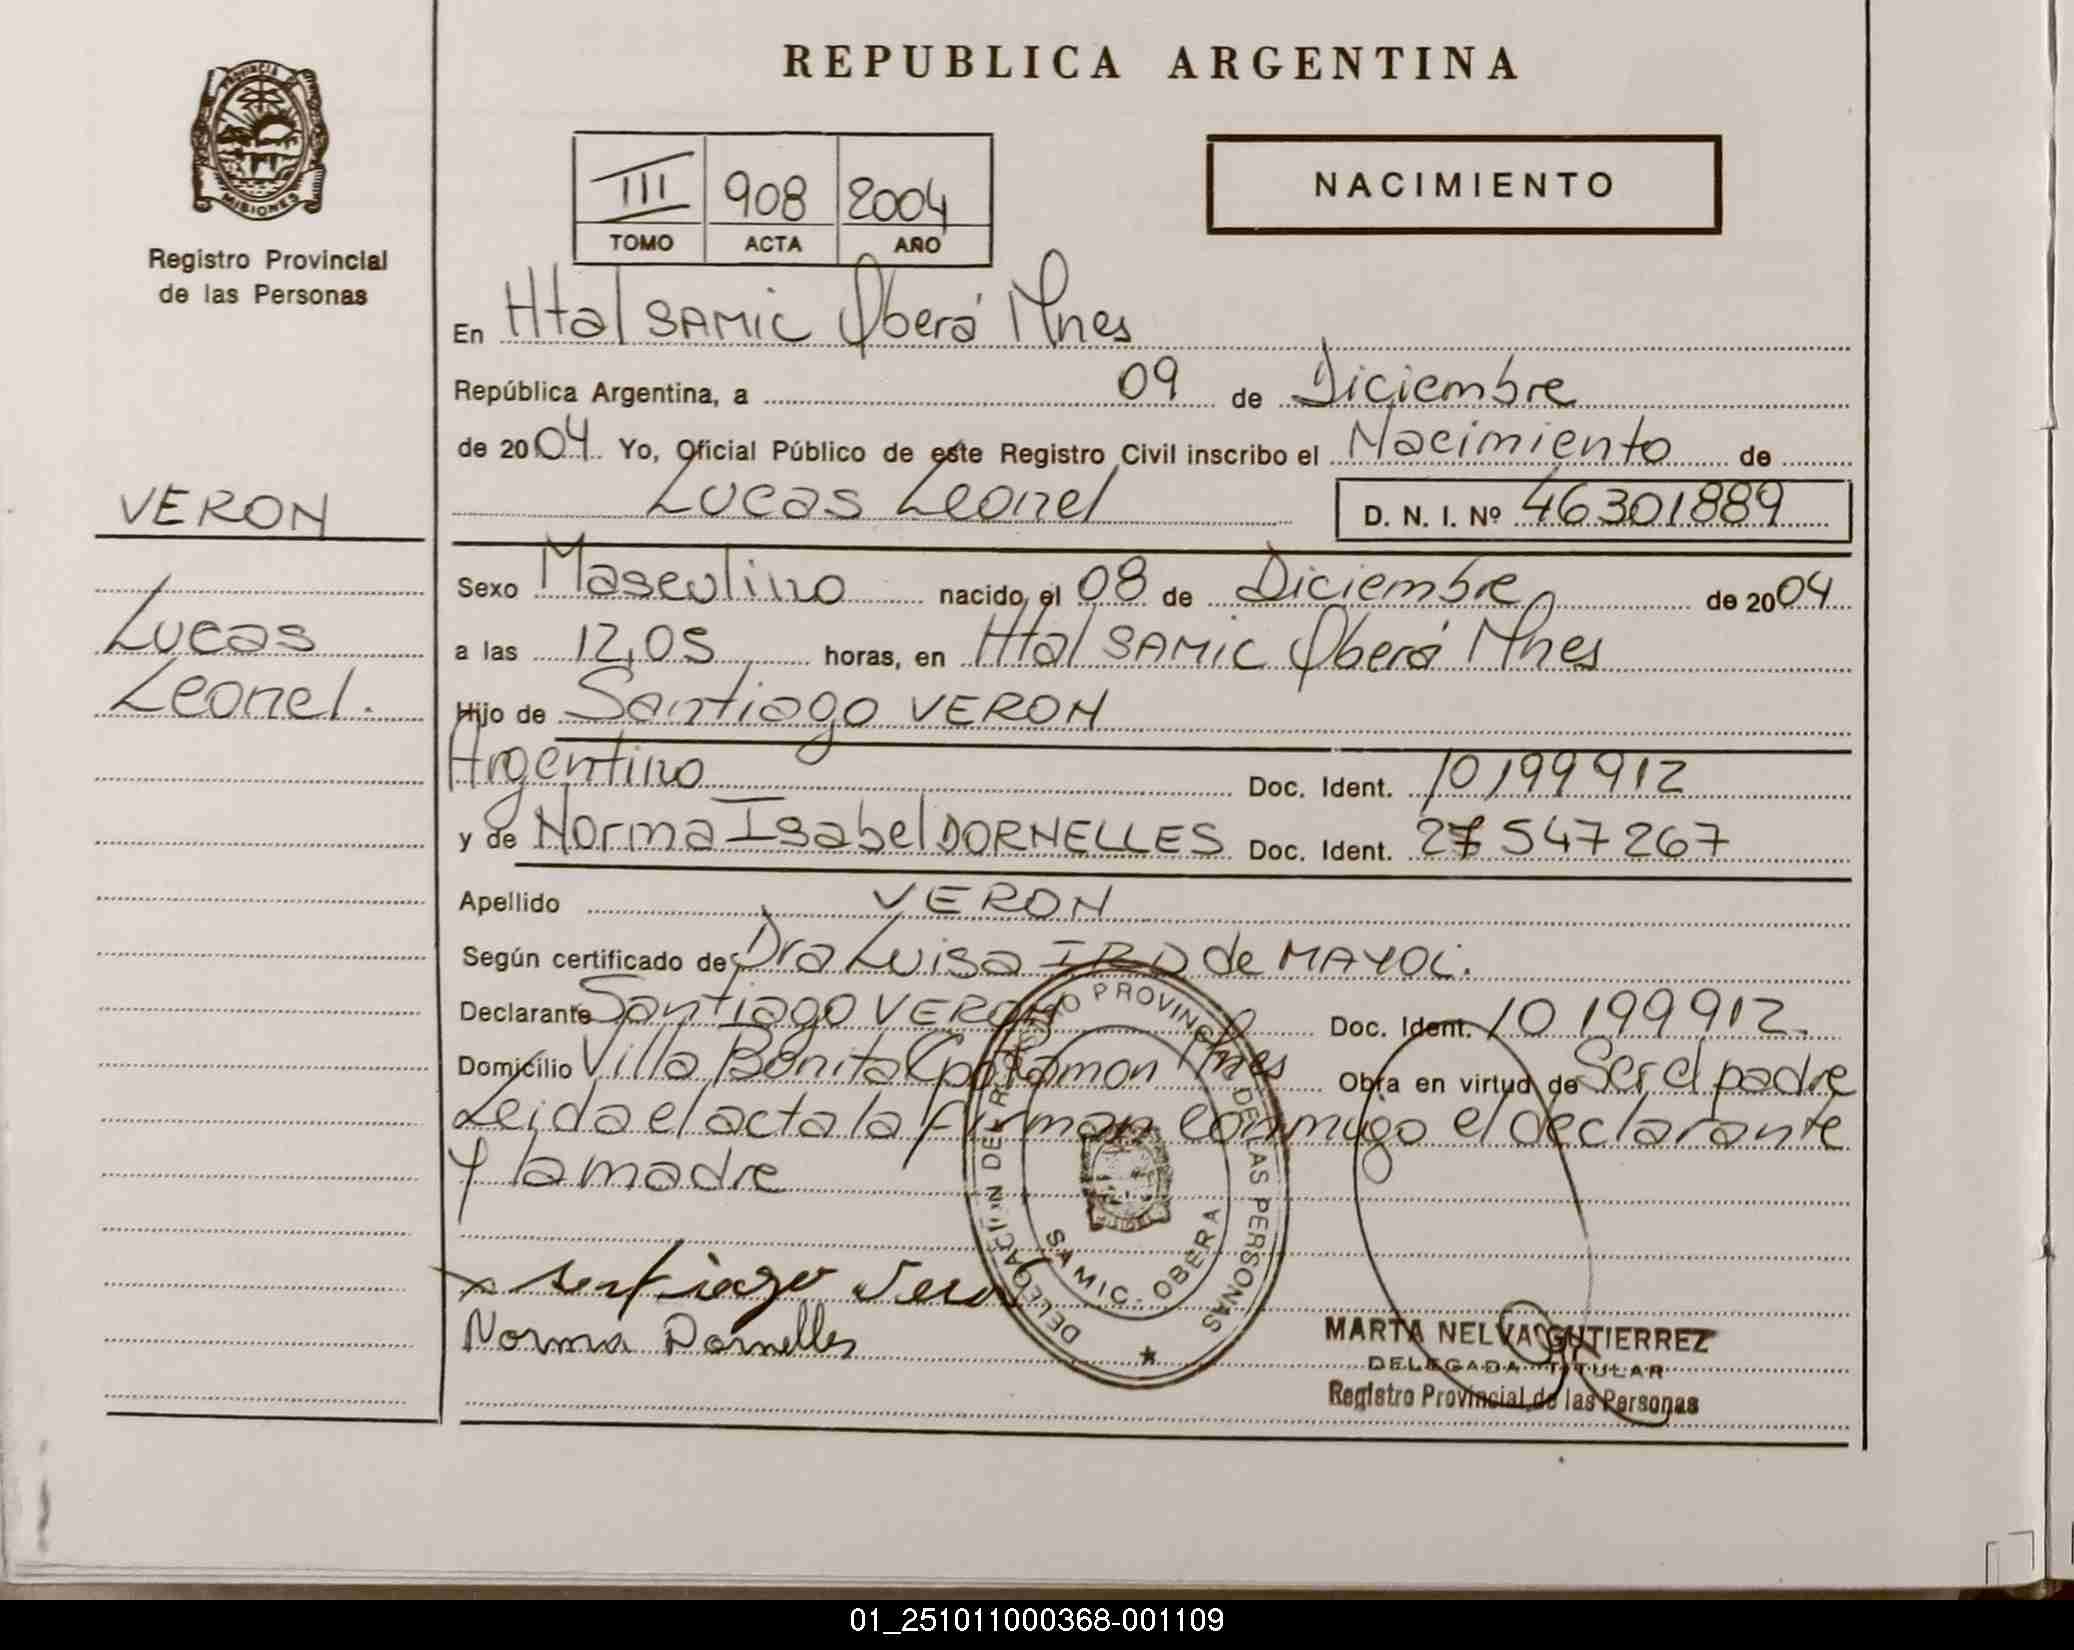 REPUBLICA ARGENTINA
PROVINCIA DE
MISIONES
Registro Provincial
de las Personas
III 908 2004
TOMO ACTA AÑO
NACIMIENTO
En Htal SAMIC Oberá Mnes
República Argentina, a 09 de Diciembre
de 2004. Yo, Oficial Público de este Registro Civil inscribo el Nacimiento de
Lucas Leonel D. N. I. Nº 46301889
VERON
Lucas
Leonel.
Sexo Masculino nacido el 08 de Diciembre de 2004
a las 12,05 horas, en Htal SAMIC Oberá Mnes
Hijo de Santiago VERON
Argentino Doc. Ident. 10199912
y de Norma Isabel DORNELLES Doc. Ident. 27547267
Apellido VERON
Según certificado de Dra Luisa de
Declarante Santiago VERON Doc. Ident. 10199912.
Domicilio Villa Bonita Cpo Ramon Mnes Obra en virtud de Ser el padre
Leida el acta la firman conmigo el declarante
y la madre
Santiago Veron
Norma Dornelles
DELEGACION DEL REGISTRO PROVINCIAL DE LAS PERSONAS
SAMIC - OBERA
MARTA NELVA GUTIERREZ
DELEGADA TITULAR
Registro Provincial de las Personas
01_251011000368-001109